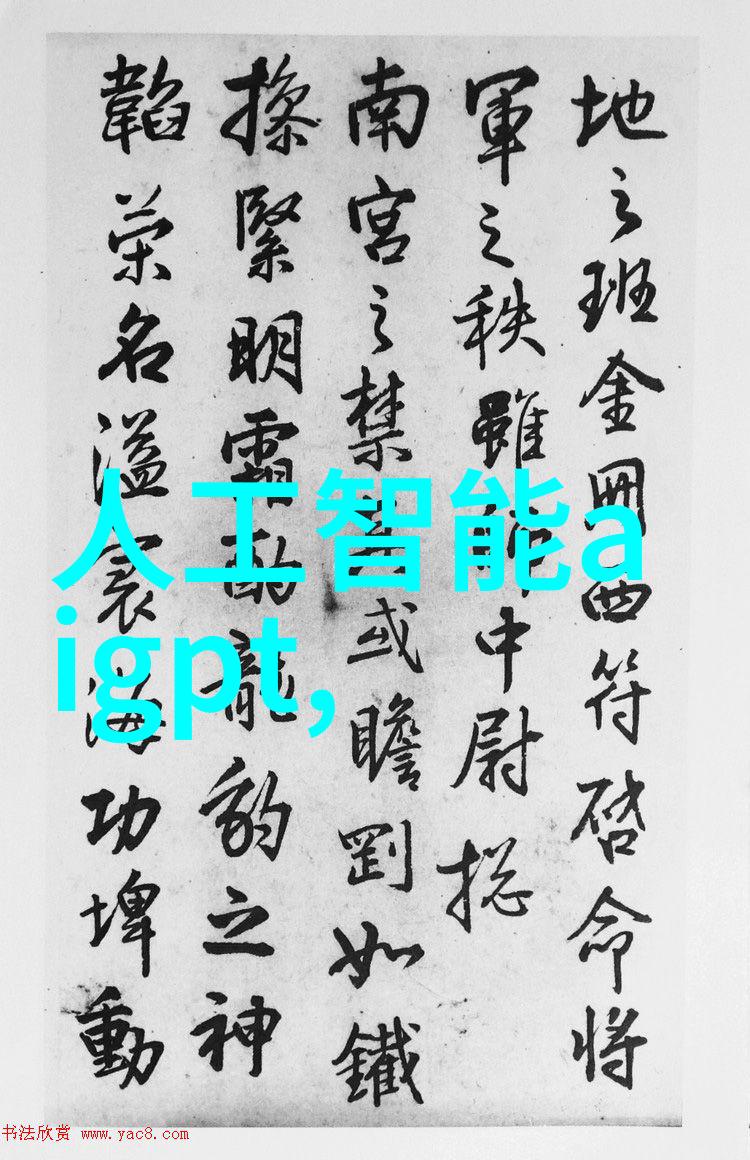 地之班金冊西符啓命将
軍之秩雖中尉揔
南宮之禁或瞻剛如鐵
操緊明霜酌龍豹之神
韜榮名溢寰海功埤動
人工智能a
igpt,
书法欣赏 www.yac8.com